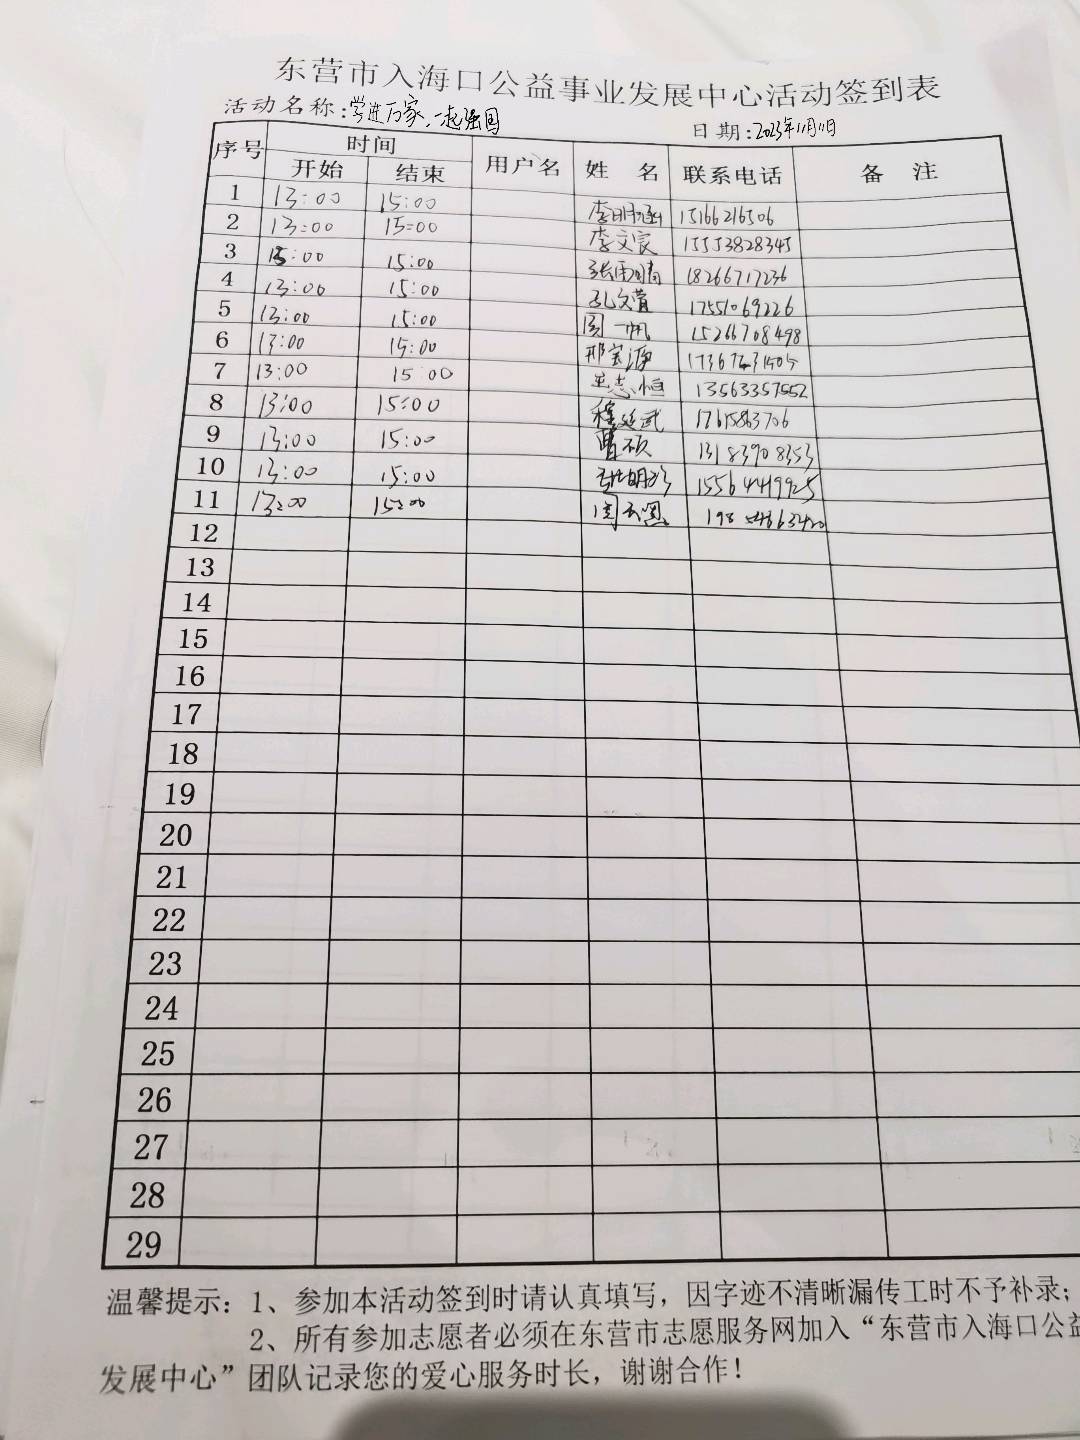 东营市入海口公益事业发展中心活动签到表
活动名称:学进万家,一起强国 日期:2023年11月11日
序号 时间 用户名 姓 名 联系电话 备 注
开始 结束
1 13:00 15:00 李明涵 15166216506
2 13:00 15:00 李文宸 15553828345
3 15:00 15:00 18266717236
4 13:00 15:00 孔文萱 17551069226
5 13:00 15:00 周一帆 15266708498
6 13:00 15:00 邢宝源
7 13:00 15:00 王志恒 13563357552
8 13:00 15:00 程延武 17615863706
9 13:00 15:00 曹硕 13183908353
10 13:00 15:00 15564419925
11 13:00 15:00
12
13
14
15
16
17
18
19
20
21
22
23
24
25
26
27
28
29
温馨提示:1、参加本活动签到时请认真填写,因字迹不清晰漏传工时不予补录;
2、所有参加志愿者必须在东营市志愿服务网加入“东营市入海口公益
发展中心”团队记录您的爱心服务时长,谢谢合作!